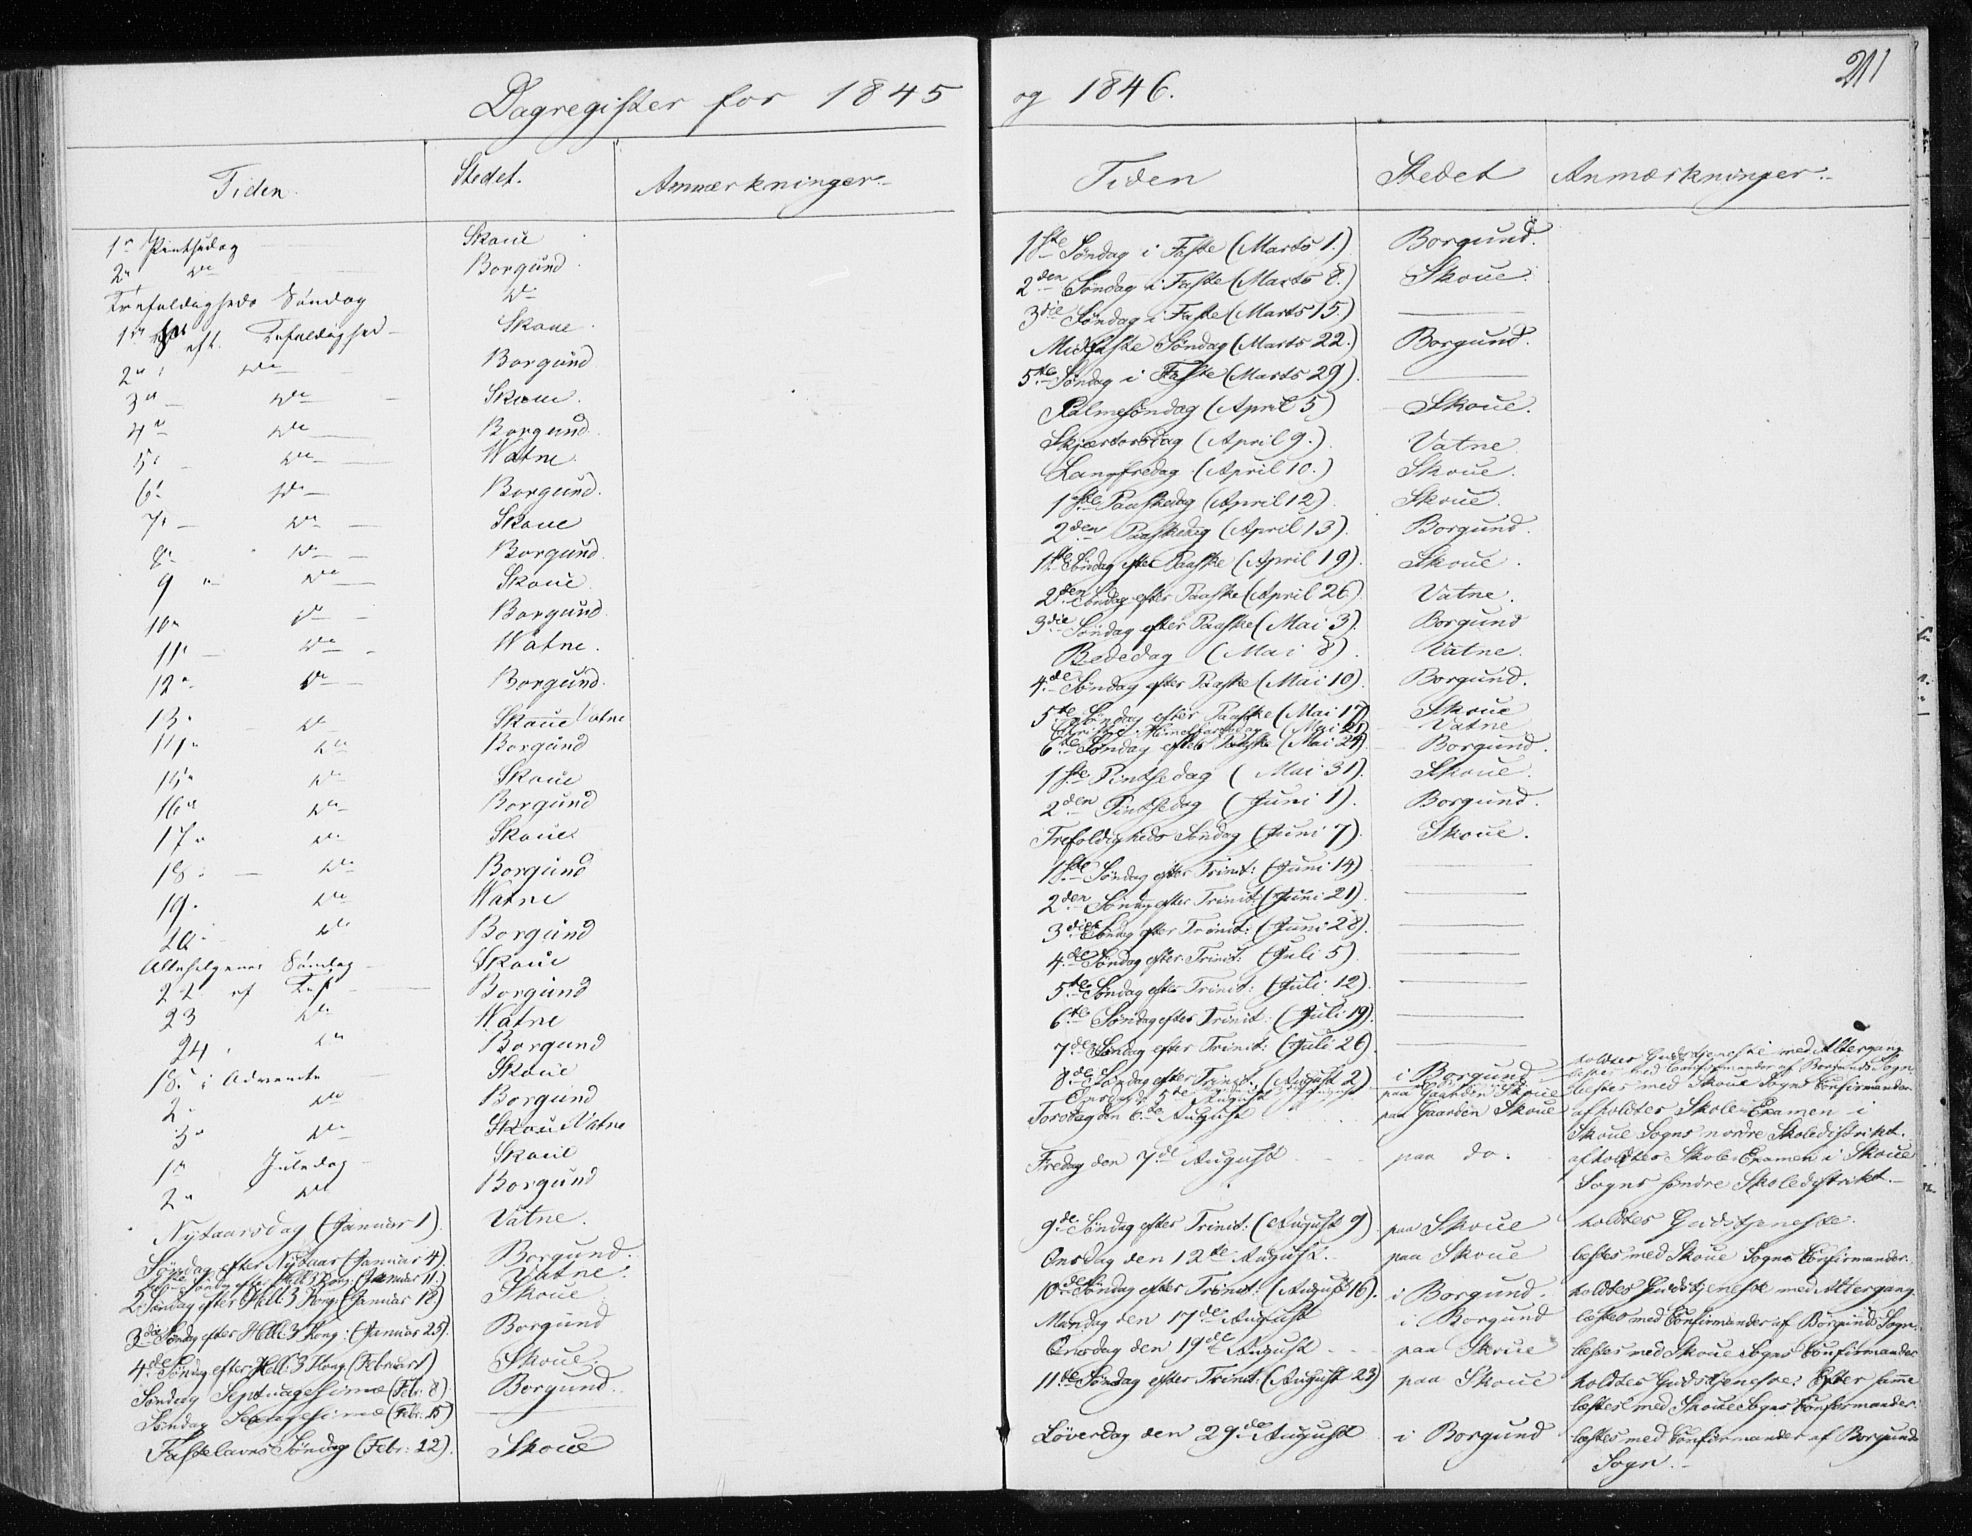 Dagregister for 1845
Tiden. Stedet. Anmærkninger.
1n Pintsedag Skoue
2n do Borgund
Trefoldigheds Søndag do
1n eft. Trefoldighed Skoue
2n do Borgund
3n do Skoue.
4n do Borgund
5n do Watne
6n do Borgund.
7n do Skoue
8n do Borgund
9n do Skoue
10n do Borgund
11n do Watne.
12n do Borgund.
13n do Skoue Vatne
14n do Borgund
15n do Skoue
16n do Borgund
17n do Skoue
18n do Borgund
19n do Watne
20n do Borgund
Allehelgenes Søndag Skoue
22 ef Tref Borgund
23 do Watne
24 do Borgund
1ste i Advendte Skoue
2n do Borgund
3n do Skoue Vatne
1n Juledag Skoue
2n do Borgund
Nytaarsdag (Januar 1). Vatne.
Søndag efter Nytaar (Januar 4). Borgund.
1ste Søndag efter Hell: 3 Kong: (Januar 11.) Vatne.
2. Søndag efter Hell: 3 Kong: (Januar 18) Skoue.
3die Søndag efter Hell: 3 Kong: (Januar 25). Borgund
4de Søndag efter Hell: 3 Kong. (Februar 1) Skoue.
Søndag Septuagesima (Febr. 8). Borgund.
Søndag Sexagesima (Febr. 15)
Fastelavns Søndag (Febr: 22). Skoue
211
og 1846.
Tiden Stedet Anmærkninger.
1ste Søndag i Faste (Marts 1.) Borgund.
2den Søndag i Faste (Marts 8.) Skoue.
3die Søndag i Faste (Marts 15.)
Midfaste Søndag (Marts 22.) Borgund.
5te Søndag i Faste (Marts 29).
Palmesøndag (April 5) Skoue.
Skjærtorsdag (April 9.) Vatne
Langfredag (April 10.) Skoue.
1ste Paaskedag (April 12). Skoue.
2den Paaskedag (April 13). Borgund.
1ste Søndag efter Paaske (April 19). Skoue.
2den Søndag efter Paaske (April 26) Vatne.
3die Søndag efter Paaske (Mai 3). Borgund
Bededag (Mai 8). Vatne.
4de Søndag efter Paaske (Mai 10). Borgund.
5te Søndag efter Paaske (Mai 17) Skoue
Christi Himmelfartsdag (Mai 21) Vatne
6te Søndag efter Paaske (Mai 24) Borgund.
1ste Pintsedag (Mai 31). Skoue.
2den Pintsedag (Juni 1). Borgund.
Trefoldigheds Søndag (Juni 7). Skoue.
1ste Søndag efter Trinit: (Juni 14)
2den Søndag efter Trinit (Juni 21).
3die Søndag efter Trinit: (Juni 28).
4de Søndag efter Trinit: (Juli 5).
5te Søndag efter Trinit: (Juli 12).
6te Søndag efter Trinit: (Juli 19).
7de Søndag efter Trinit: (Juli 26).
8de Søndag efter Trinit: (August 2) i Borgund holdtes Gudstjeneste med Altergang
læstes med Confirmander af Borgunds Sogn
Onsdag d. 5te August paa Gaarden Skoue læstes med Skoue Sogns Confirmander
Torsdag den 6te August paa Gaarden Skoue afholdtes Skole-Examen i
Skoue Sogns nordre Skoledistrikt.
Fredag den 7de August paa do. afholdtes Skole-Examen i Skoue
Sogns søndre Skoledistrikt.
9de Søndag efter Trinit: (August 9) paa Skoue holdtes Gudstjeneste.
Onsdag den 12te August. paa Skoue læstes med Skoue Sogns Confirmander.
10de Søndag efter Trinit: (August 16). i Borgund. holdtes Gudstjeneste med Altergang.
Mandag den 17de August i Borgund læstes med Confirmander af Borgunds Sogn.
Onsdag den 19de August paa Skoue læstes med Skoue Sogns Confirmander
11de Søndag efter Trinit: (August 23) paa Skoue holdtes Gudstjeneste; Efter samme
læstes med Skoue Sogns Confirmander.
Løverdag den 29de August i Borgund læstes med Confirmander af Borgunds
Sogn.